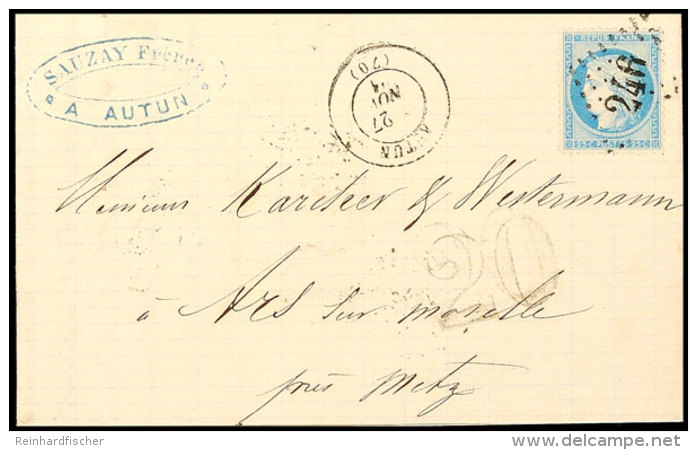 SAUZAY Frères
A AUTUN
AUTUN
27
NOV
(70)
REPUB. FRANC.
25 C POSTES 25 C
Messieurs Karcher & Westermann
à Ars sur moselle
près Metz
Reinhardfischer
delcampe.net